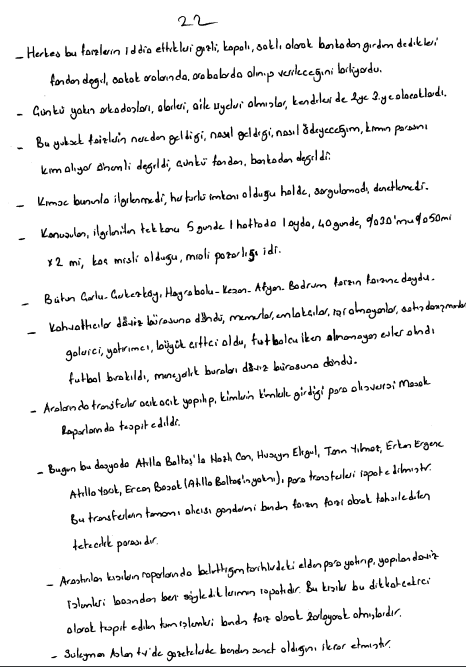 22
- Herkes bu faizlerin iddia ettikleri gizli, kapalı, saklı olarak bankadan girdim dedikleri
fondan değil, sokak aralarında, arabalarda alınıp verileceğini biliyordu.
- Çünkü yakın arkadaşları, abileri, aile üyeleri almışlar, kendileride 2ye 3.ye alacaklardı.
- Bu yüksek faizlerin nereden geldiği, nasıl geldiği, nasıl ödeyeceğim, kimin parasını
kim alıyor önemli değildi, çünkü fondan, bankadan değildi.
- Kimse bununla ilgilenmedi, her türlü imkanı olduğu halde, sorgulamadı, denetlemedi.
- Konuşulan, ilgilenilen tek konu 5 günde 1 haftada 1 ayda, 40 günde, %30'mu %50mi
x2 mi, kaç misli olduğu, misli pazarlığı idi.
- Bütün Çorlu-Çerkezköy, Hayrabolu-Keşan-Afyon-Bodrum faizin faizine doydu.
- Kahvehaneler döviz bürosuna döndü, memurlar, emlakcılar, işi olmayanlar, satış danışmanları
galerici, yatırımcı, büyük çiftci oldu, futbolcu iken alınamayan evler alındı
futbol bırakıldı, menejerlik buraları döviz bürosuna döndü.
- Aralarında transferler açık açık yapılıp, kimlerin kimlerle girdiği para alışverişi Masak
Raporlarında tespit edildi.
- Bugün bu dosyada Atilla Baltaş'la Nazlı Can, Hüseyin Eligül, Tanın Yılmaz, Erkan Ergenç
Atilla Yörük, Ercan Başak (Atilla Baltaş'ın yakını), para transferleri ispat edilmiştir.
Bu transferlerin tamamı alıcısı göndereni benden faizin faizi olarak tahsil edilen
tefecilik parasıdır.
- Araştırılan kişilerin raporlarında belirttiğim tarihlerdeki elden para yatırıp, yapılan döviz
işlemleri başından beri söylediklerimin ispatıdır. Bu kişiler bu dikkat çekici
olarak tespit edilen tüm işlemleri benden faiz olarak zorlayarak almışlardır.
- Süleyman Aslan tv'de gazetelerde benden senet aldığını ikrar etmiştir.